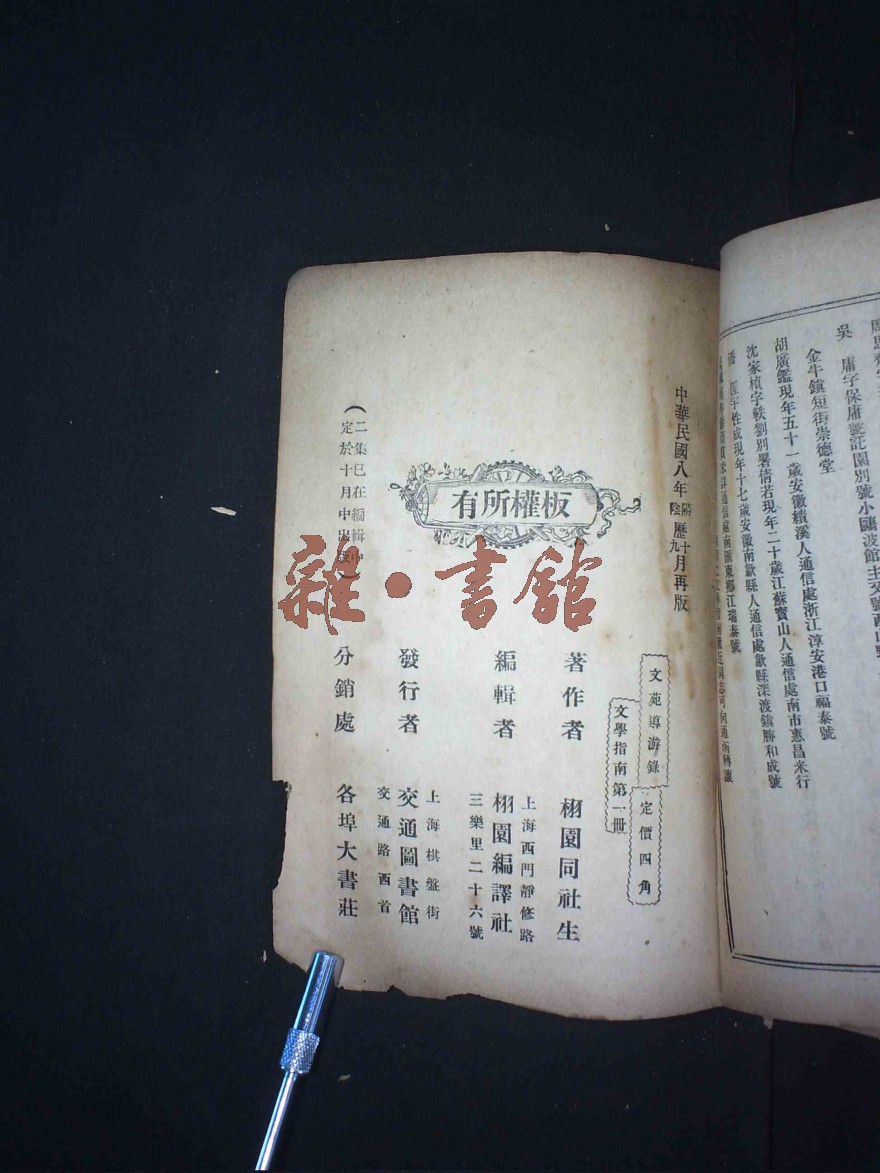 吳　庸字保庸號託園別號小鷗波館主又號西山
金牛鎮短街崇德堂
胡廣鑑現年五十一歲安徽績溪人通信處浙江淳安港口福泰號
沈家楨字軼劉別署倩若現年二十歲江蘇寶山人通信處南市惠昌米行
字性成現年十七歲安徽南歙縣人通信處歙縣深渡鎮勝和成號
通信處南匯東鄉江瑞泰號
中華民國八年陽陰歷十九月再版
文苑導游錄
定價四角
文學指南第一冊
板權所有
著作者　栩園同社生
編輯者　栩園編譯社
上海西門靜修路
三樂里二十六號
發行者　交通圖書館
上海棋盤街
交通路西首
分銷處　各埠大書莊
（二集已在編輯中
定於十月中出版）
雜·書館